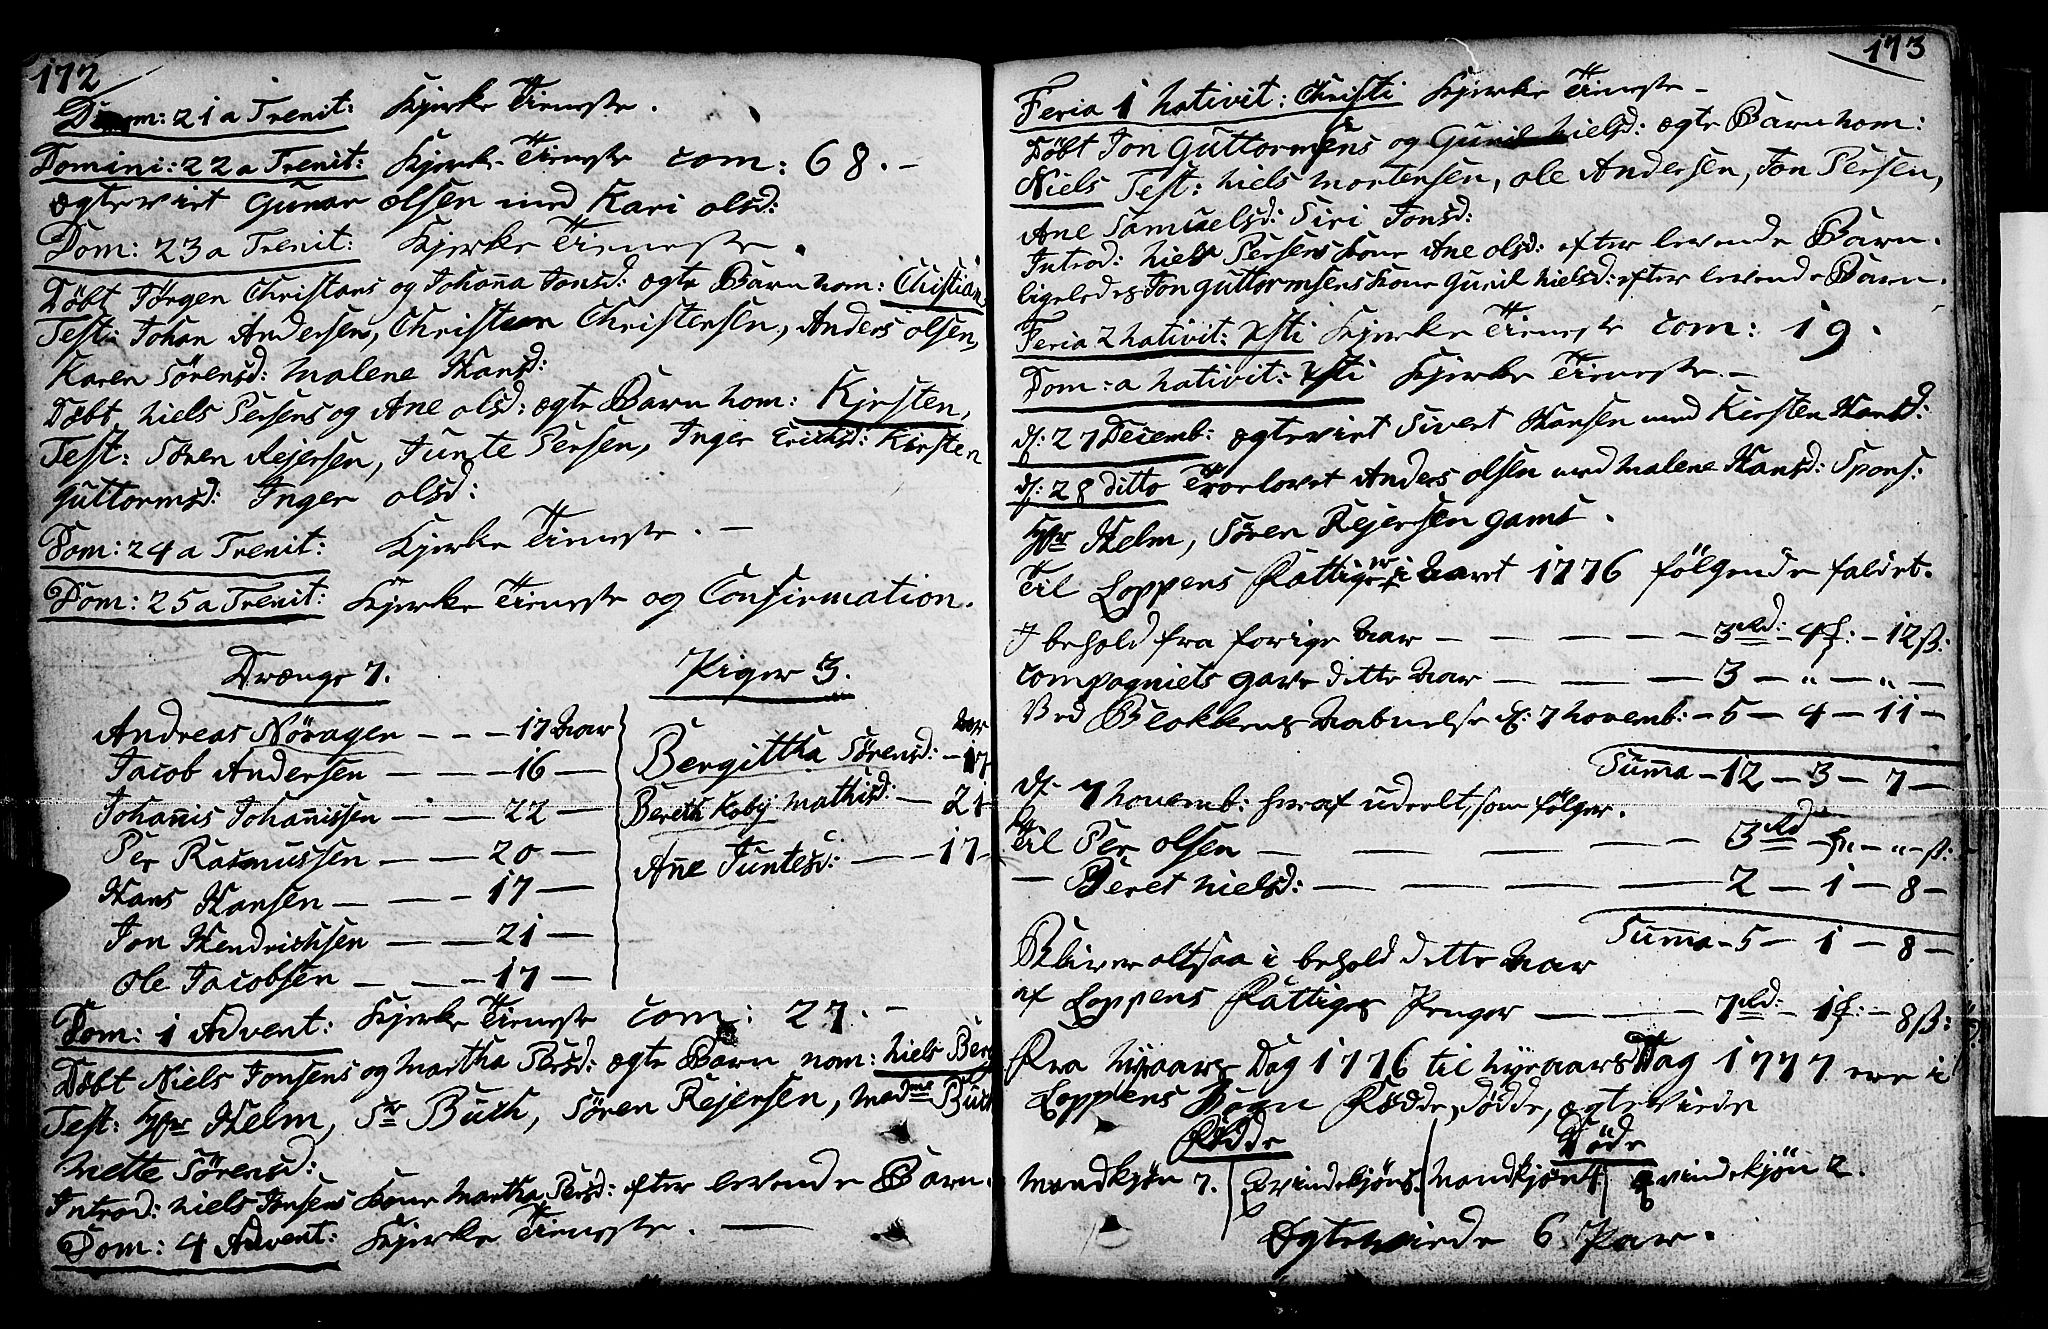 172
Dom: 21 a Trenit: Kjerke Tieneste.
Domini: 22 a Trenit: Kjerke Tieneste com: 68. -
ægteviet Gunar olsen med Kari olsd:
Dom: 23 a Trenit: Kjerke Tieneste.
Döbt Jörgen Christans og Johanna Jonsd: ægte Barn nom: Christian
Test: Johan Andersen, Christian Christensen, Anders olsen,
Karen Sörensd: Malene Hansd:
Döbt Niels Persens og Ane olsd: ægte Barn nom: Kjersten,
Test: Sören Rejersen, Junte Persen, Inger Erichsd: Kirsten
Guttormsd: Inger olsd:
Dom: 24 a Trenit: Kjerke Tieneste. -
Dom: 25 a Trenit: Kjerke Tieneste og Confirmation.
Drænge 7. Piger 3.
Andreas Nöragen - - - 17 Aar
Jacob Andersen - - - 16 -
Johannis Johannissen - - 22 -
Per Rasmussen - - 20 -
Hans Hansen - - - 17 -
Jon Hendrichsen - - 21 -
Ole Jacobsen - - - 17 -
Aar
Bergittha Sörensd: - 17
Bereth Koby Mathisd: - 21
Anne Juntesd: - - 17
Dom: 1 Advent: Kjerke Tieneste com: 27. -
Döbt Niels Jonsens og Martha Persd: ægte Barn nom: Niels Berg
Test: Hr Helm, Sr Buch, Sören Rejersen, Madme Buch
Mette Sörensd:
Introd: Niels Jonsens Kone Martha Persd: efter levende Barn.
Dom: 4 Advent: Kjerke Tieneste. -
173
Feria 1 Nativit: Christi Kjerke Tieneste -
Döbt Jon Guttormsens og Gunil Nielsd: ægte Barn nom:
Niels Test: Niels Mortensen, ole Andersen, Jon Persen,
Ane Samuelsd: Siri Jonsd:
Introd: Niels Persens Kone Ane olsd: efter levende Barn.
ligeledes Jon Guttormsens Kone Gunil Nielsd: efter levende Barn.
Feria 2 Nativit: Xsti Kjerke Tieneste com: 19.
Dom: a Nativit: Xsti Kjerke Tieneste. -
d: 27 Decemb: ægteviet Sivert Hansen med Kirsten Hansd:
d: 28 ditto Troelovet Anders olsen med Malene Hansd: Spons:
Hr Helm, Sören Rejersen Gamt.
Til Loppens Fattige er i Aaret 1776 fölgende faldet.
I behold fra forige Aar - - - - - 3 rd: - 4 : - 12 ß:
Compagniets gave ditto Aar - - - 3 - " - " -
Ved Blokkens Aabnelse d: 7 Novemb: - 5 - 4 - 11 -
Summa - 12 - 3 - 7 -
d: 7 Novemb: heraf udeelt, som fölger.
Til Per olsen - - - - - 3 rd - " - " - ß:
- Beret Nielsd: - - - - 2 - 1 - 8 -
Summa - 5 - 1 - 8 -
Bliver altsaa i behold ditto Aar
af Loppens Fattiges Penger - - - 7 rd: - 1 : - 8 ß:
Fra Nyaars Dag 1776 til Nyeaars Dag 1777 ere i
Loppens Sogn Födde, Dödde, ægteviede
Födde Döde
Mandkjön 7. Qvindekjön 5. Mandkjön 4 Qvindekjön 2.
Ægteviede 6 Par.